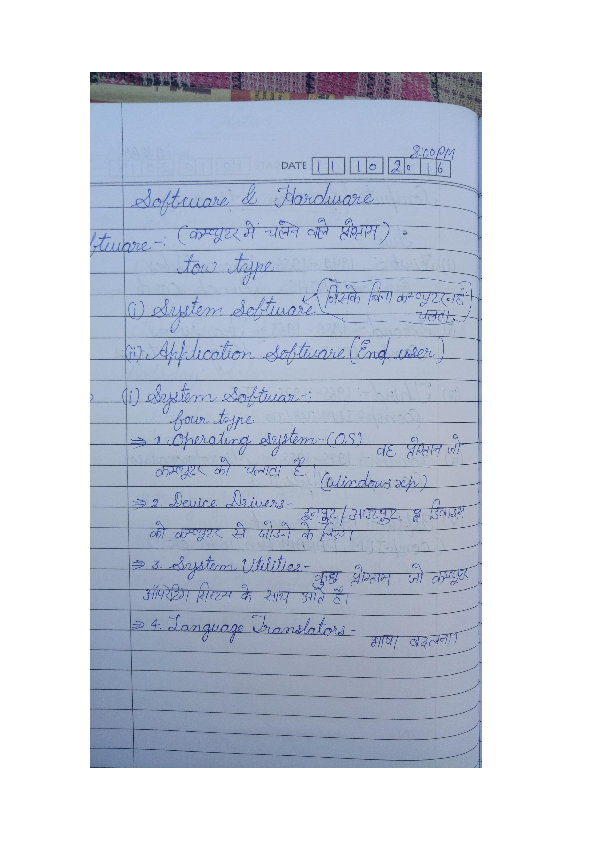 8:00PM
DATE 11 10 2016
Software & Hardware
ftware-: (कम्प्यूटर में चलने वाले प्रोग्राम)
tow type
(i) System Software (जिसके बिना कम्प्यूटर नहीं
चलता)
(ii) Application Software (End user)
(i) System Softwar-:
four type
⇒ 1. Operating System-(OS) वह प्रोग्राम जो
कम्प्यूटर को चलाता है। (Windows xp)
⇒ 2. Device Drivers- इनपुट/आउटपुट डिवाइस
को कम्प्यूटर से जोडने के लिए।
⇒ 3. System Utilities- कुछ प्रोग्राम जो कम्प्यूटर
ऑपरेटिंग सिस्टम के साथ आते है।
⇒ 4. Language Translators- भाषा बदलना।